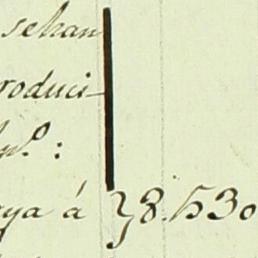 sehan
roduci-
aya á 78.530